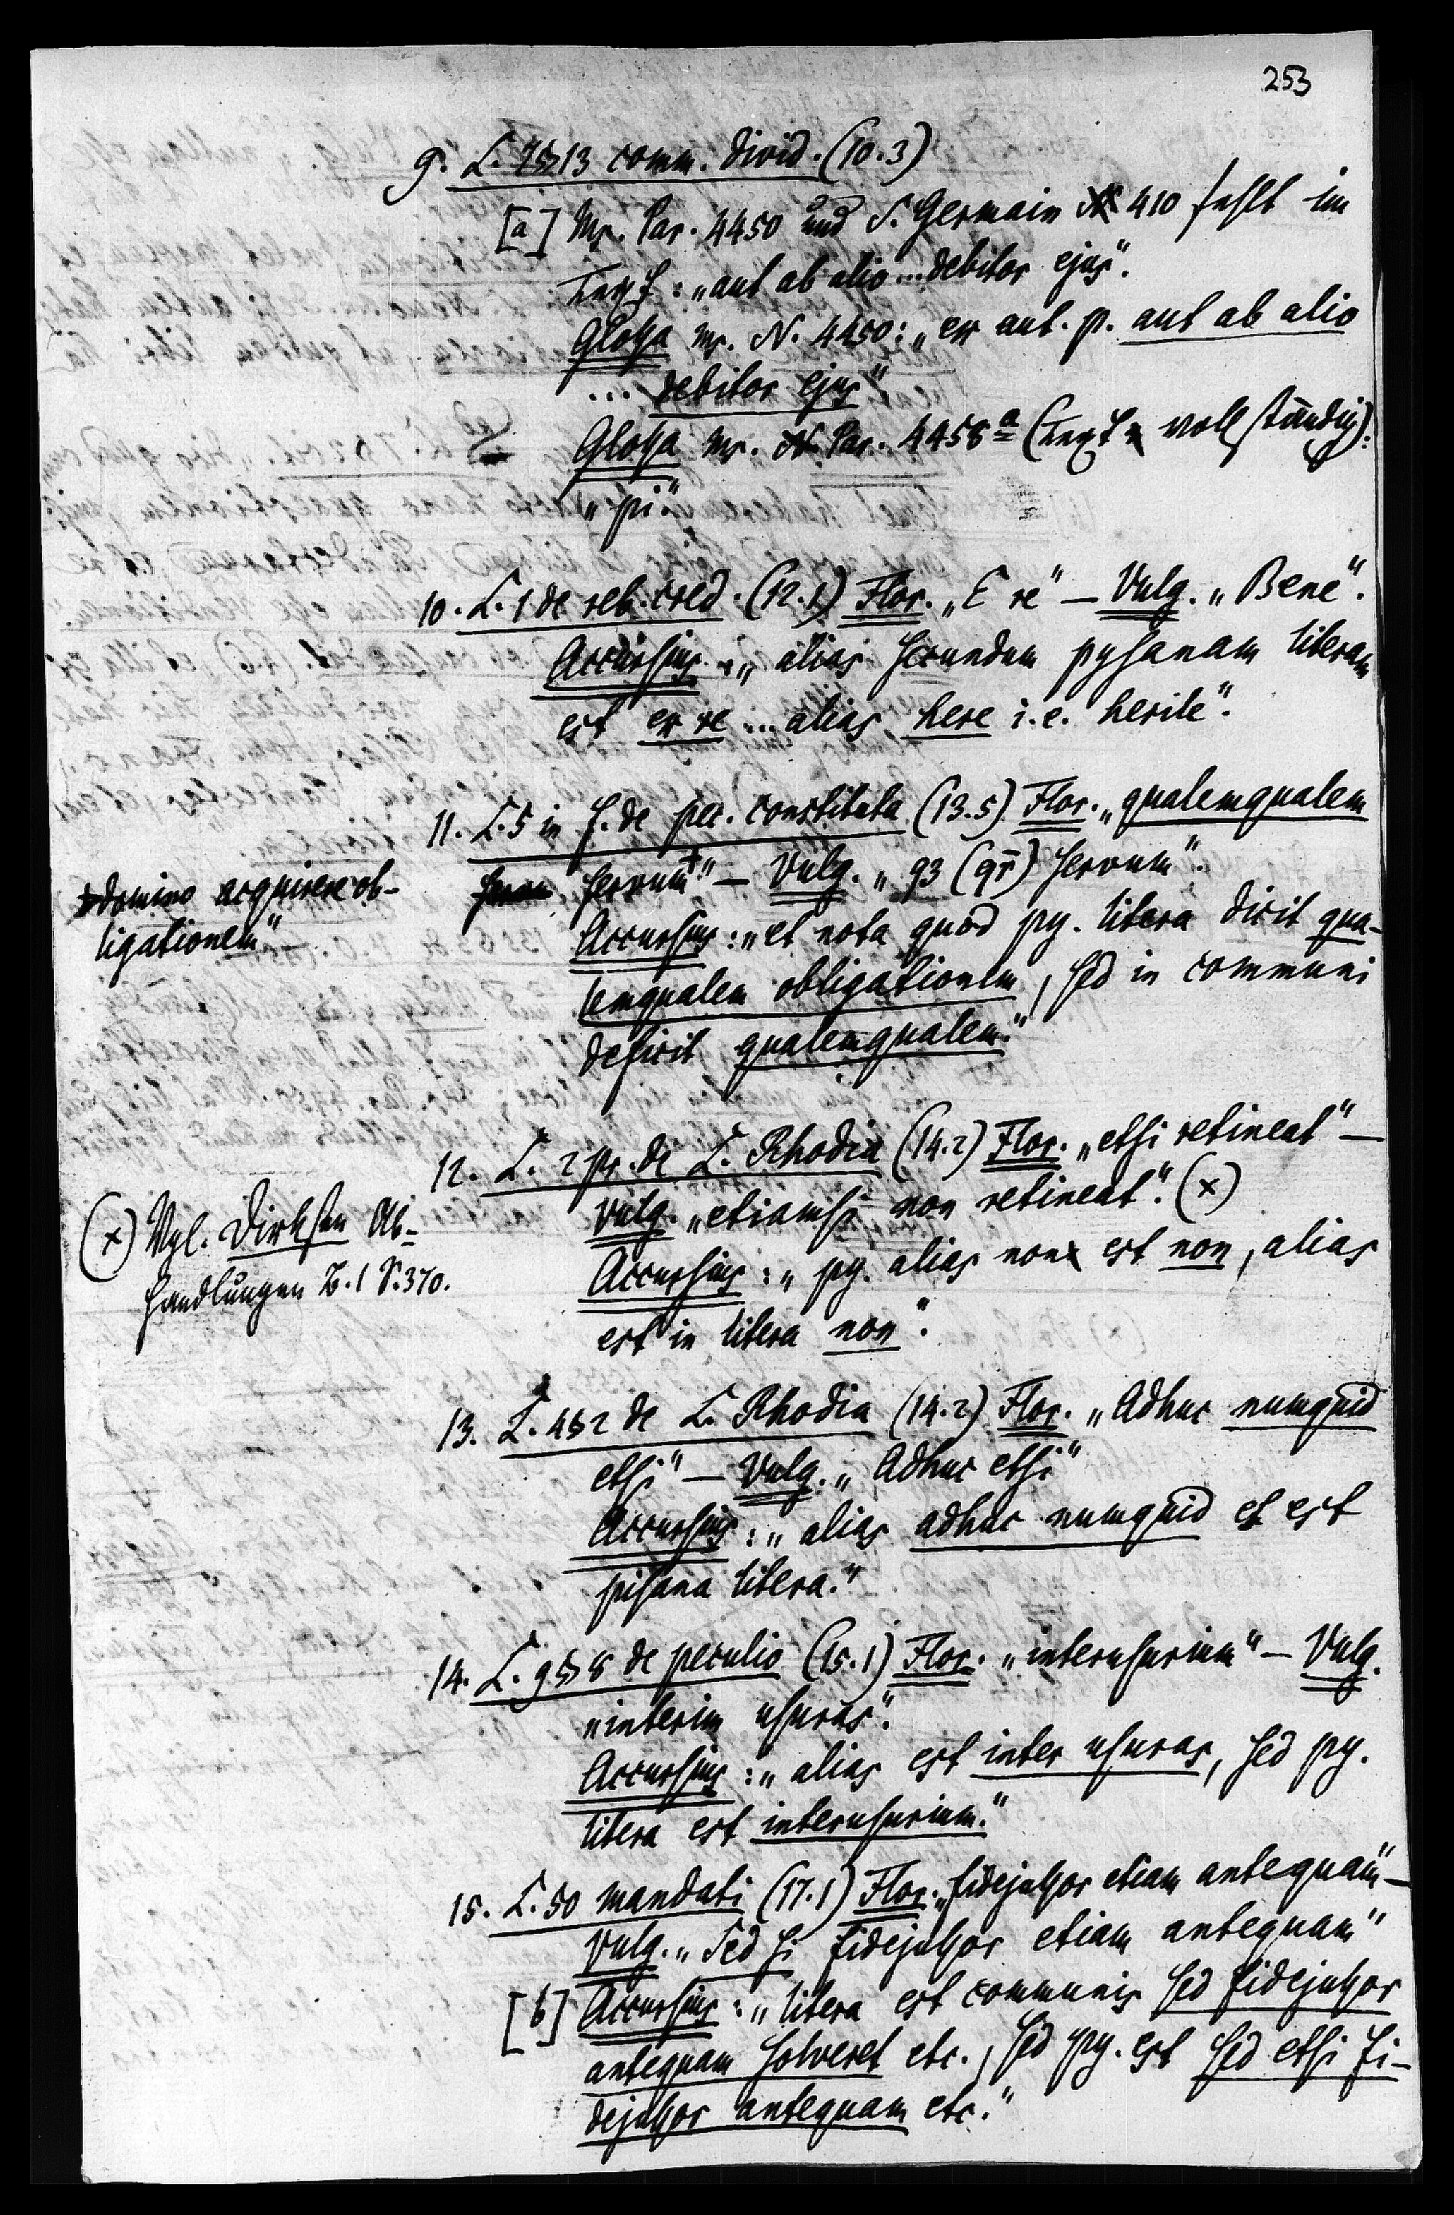 253
9. L. 7 § 13 comm. divid. (10.3)
[a] Ms. Par. 4450 und S. Germain 410 fehlt im
Text: „aut ab alio ... debitor ejus".
Glossa ms. N. 4450: „er aut. p. aut ab alio
... debitor ejus"
Glossa ms. Par. 4458ª (Text vollständig):
„pi."
10. L. 1 de reb. cred. (12.1) Flor. „E re" – Vulg. „Bene".
Accursius: „alias secundum pysanam literam
est ex re ... alias here i.e. herile".
11. L. 5 in f. de pec. constituta (13.5) Flor. „qualemqualem
servum+" – Vulg. „q3 (qr̄) servum".
+domino acquirere ob-
ligationem"
Accursius: „et nota quod py. litera dicit qua-
lemqualem obligationem, sed in communi
deficit qualemqualem."
12. L. 2 pr. de L. Rhodia (14.2) Flor. „etsi retineat" –
Vulg. „etiamsi non retineat". (x)
(x) Vgl. Dirksen Ab-
handlungen B. 1 S. 370.
Accursius: „py. alias non est non, alias
est in litera non".
13. L. 4 § 2 de L. Rhodia (14.2) Flor. „Adhuc numquid
etsi" – Vulg. „Adhuc etsi"
Accursius: „alias adhuc numquid et est
pisana litera."
14. L. 9 § 8 de peculio (15.1) Flor. „interusurium" – Vulg.
„interim usuras".
Accursius: „alias est inter usuras, sed py.
litera est interusurium."
15. L. 50 mandati (17.1) Flor. „fidejussor etiam antequam" –
Vulg. „Sed si fidejussor etiam antequam"
[b] Accursius: „litera est communis sed fidejussor
antequam solveret etc., sed py. est sed etsi fi-
dejussor antequam etc."